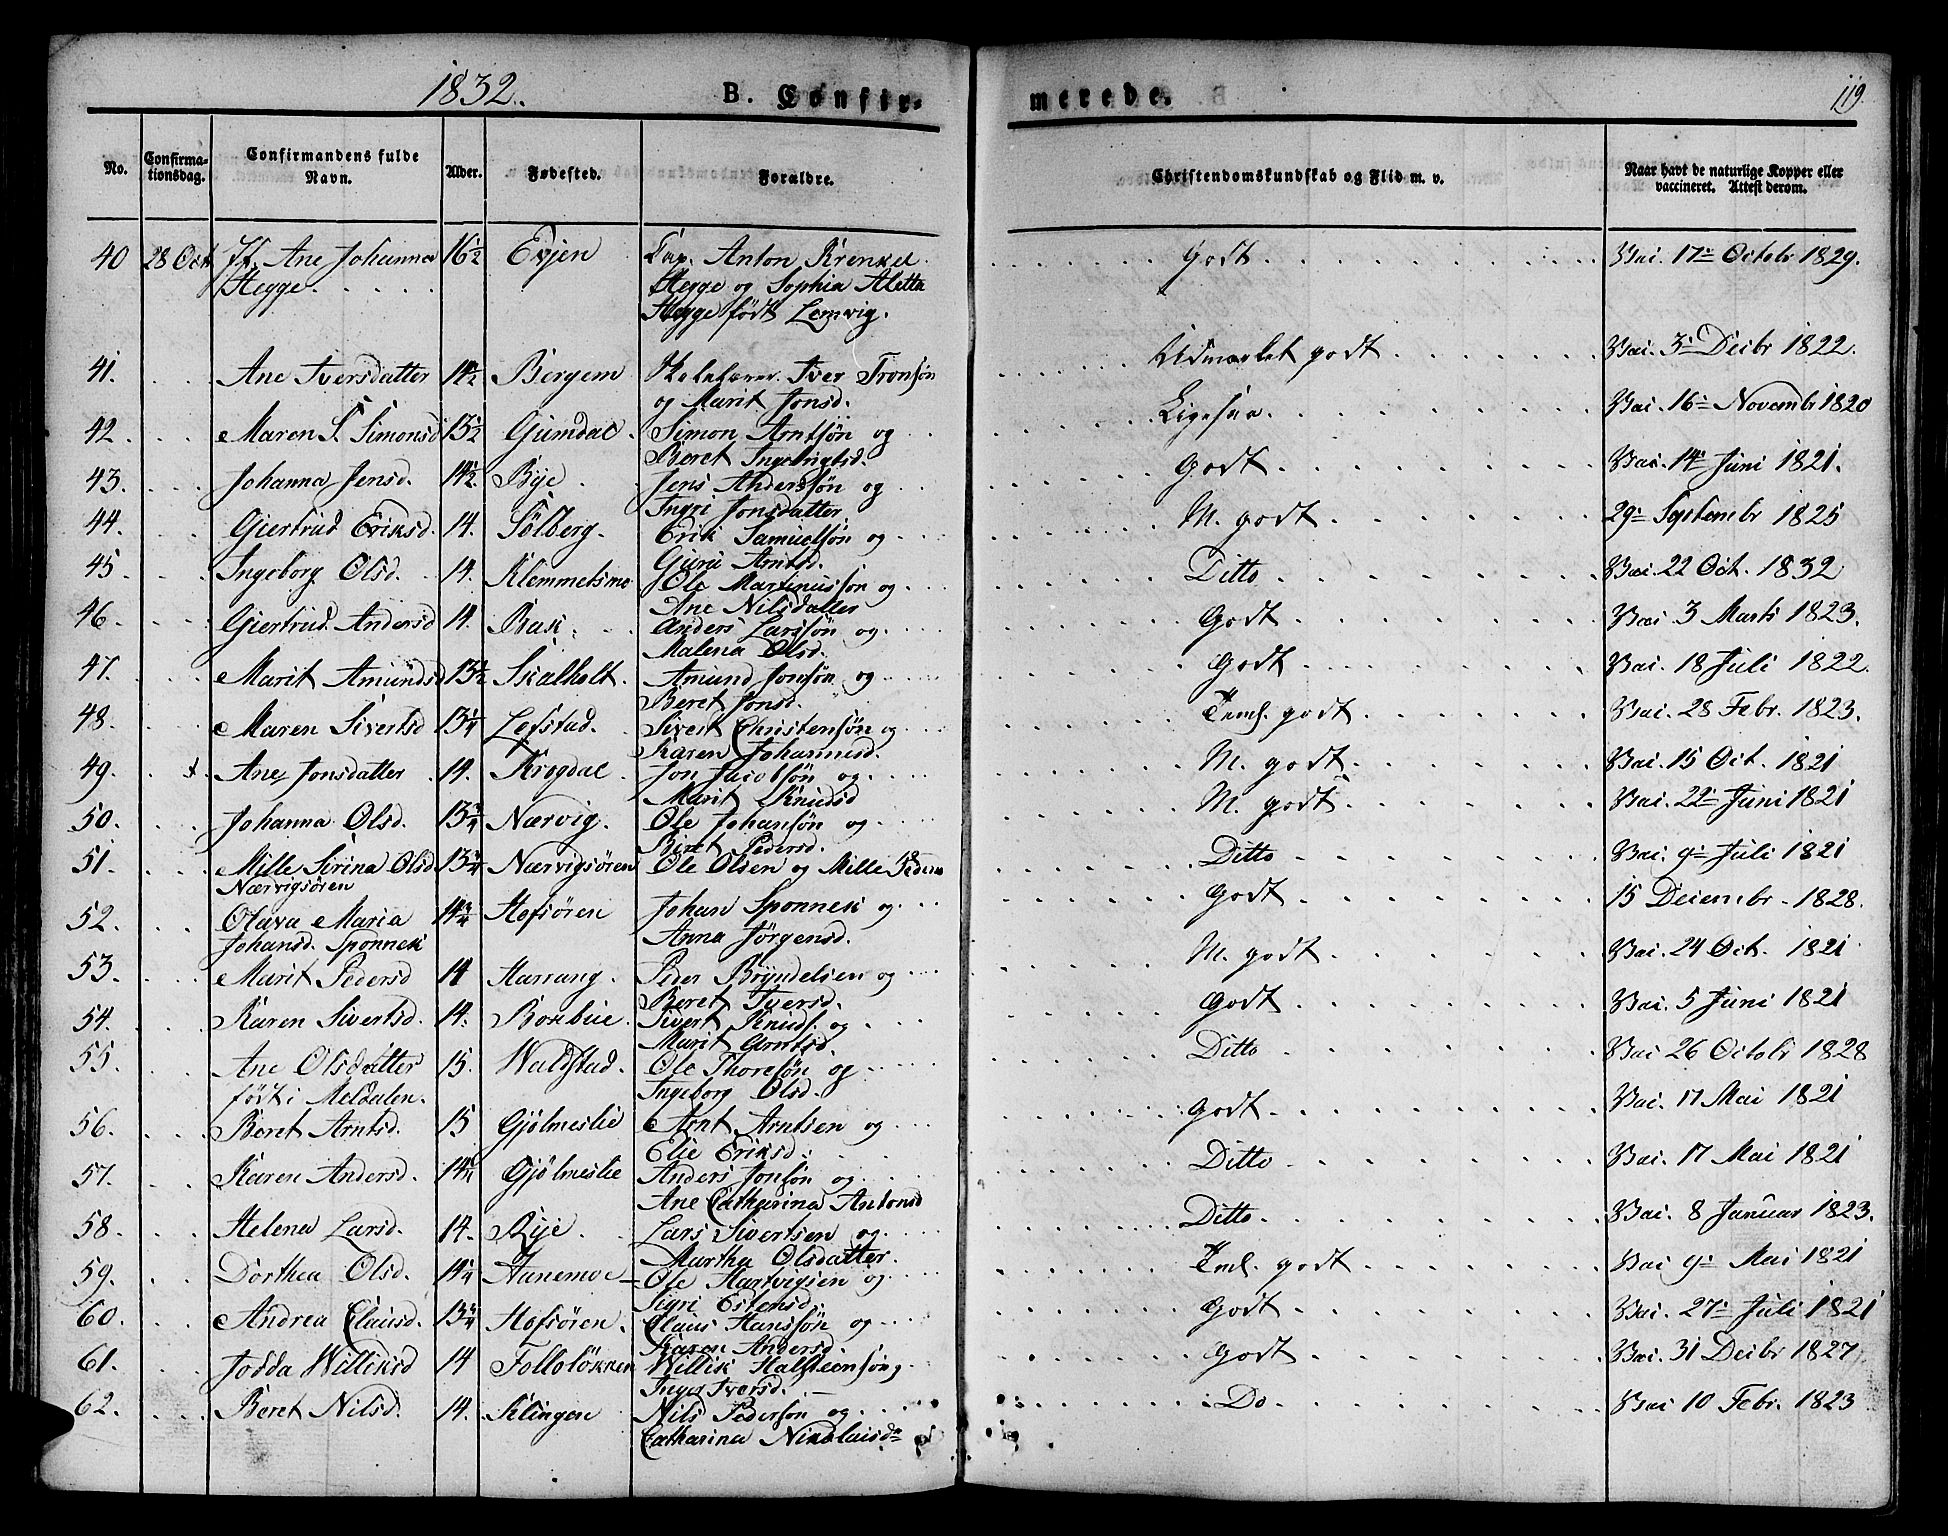 1832. B. Confir-
merede. 119.
No. Confirma-tionsdag. Confirmandens fulde Navn. Alder. Fødested. Forældre. Christendomskundskab og Flid m. v. Naar havt de naturlige Kopper eller vaccineret. Attest derom.
40 28 Oct Jf. Ane Johanna 16½ Evjen Cap. Anton Krenkel godt Vac. 17de Octobr 1829.
Hegge. Hegge og Sophia Aletta
Hegge født Lemvig.
41. Ane Iversdatter 14½ Bergem Iver Tronsøn Udmærket godt Vac. 3de Decbr 1822.
og Marit Jonsd.
42. Maren S. Simonsd 15½ Gumdal. Simon Arntsøn og Ligesaa. Vac. 16de Novembr 1820
Beret Ingebrigtsd.
43. Johanna Jensd. 14½ Bye. Jens Anderssøn og Godt Vac. 14de Juni 1821.
Ingri Jonsdatter
44. Giertrud Eriksd. 14. Solberg. Erik Samuelsøn og M. godt 29de Septembr 1825
Guru Arntsd.
45 Ingeborg Olsd. 14. Klemmetsmo Ole Martinussøn og Ditto Vac. 22 Oct. 1832
Ane Nilsdatter
46. Giertrud Andersd 14. Bak. Anders Larssøn og Godt Vac. 3 Marts 1823.
Malena Olsd.
47. Marit Amundsd 13½ Skalholt. Amund Jonsøn og godt Vac. 18 Juli 1822.
Beret Jonsd.
48. Maren Sivertsd 13¼ Lefstad. Sivert Christensøn og Teml. godt Vac. 28 Febr. 1823.
Karen Johannesd.
49. Ane Jonsdatter 14. Krogdal Jon Jacobsøn og M. godt Vac. 15 Oct. 1821
Marit Knudsd
50. Johanna Olsd. 13¾ Nærvig. Ole Johansøn og M. godt Vac. 22de Juni 1821
Beret Pedersd.
51. Mille Sirina Olsd 13¾ Nærvigsøren Ole Olsen og Mille Ditto Vac. 9de Juli 1821
Nærvigsøren
52. Olava Maria 14¾ Hofsøren Johan Sponnek og Godt 15 Decembr. 1828.
Johansd. Sponnek Anna Jørgensd.
53. Marit Pedersd 14 Harrang. Peder Bryndelsen og M. godt Vac. 24 Oct. 1821
Beret Iversd.
54. Karen Sivertsd. 14. Boebue. Sivert Knuds. og Godt Vac. 5 Juni 1821
Marit Arntsd.
55. Ane Olsdatter 15. Waldstad. Ole Thoresøn og Ditto Vac. 26 Octobr 1828
født i Meldalen. Ingeborg Olsd.
56. Beret Arntsd. 15 Gjølmeslie Arnt Arntsen og godt Vac. 17 Mai 1821
Elie Eriksd.
57. Karen Andersd. 14¼ Gjølmeslie Anders Jonsøn og Ditto Vac. 17 Mai 1821
Ane Catharina Antonsd
58. Helena Larsd. 14. Rye Lars Sivertsen og Ditto Vac. 8 Januar 1823.
Martha Olsdatter.
59. Dorthea Olsd. 14¼ Aunemoe Ole Hartvigsen og Teml. godt Vac. 9de Mai 1821
Sigri Estensd
60. Andrea Clausd. 13¾ Hofsøren. Claus Hanssøn og Godt Vac. 27de Juli 1821
Karen Andersd.
61. Jodda Williksd 14 Folloløknen Willik Halsteensøn og godt Vac. 31 Decbr 1827
Inger Iversd.
62. Beret Nilsd. 14. Selingen Nils Pedersøn og Do Vac. 10 Febr. 1823
Catharina Nikolaisdr